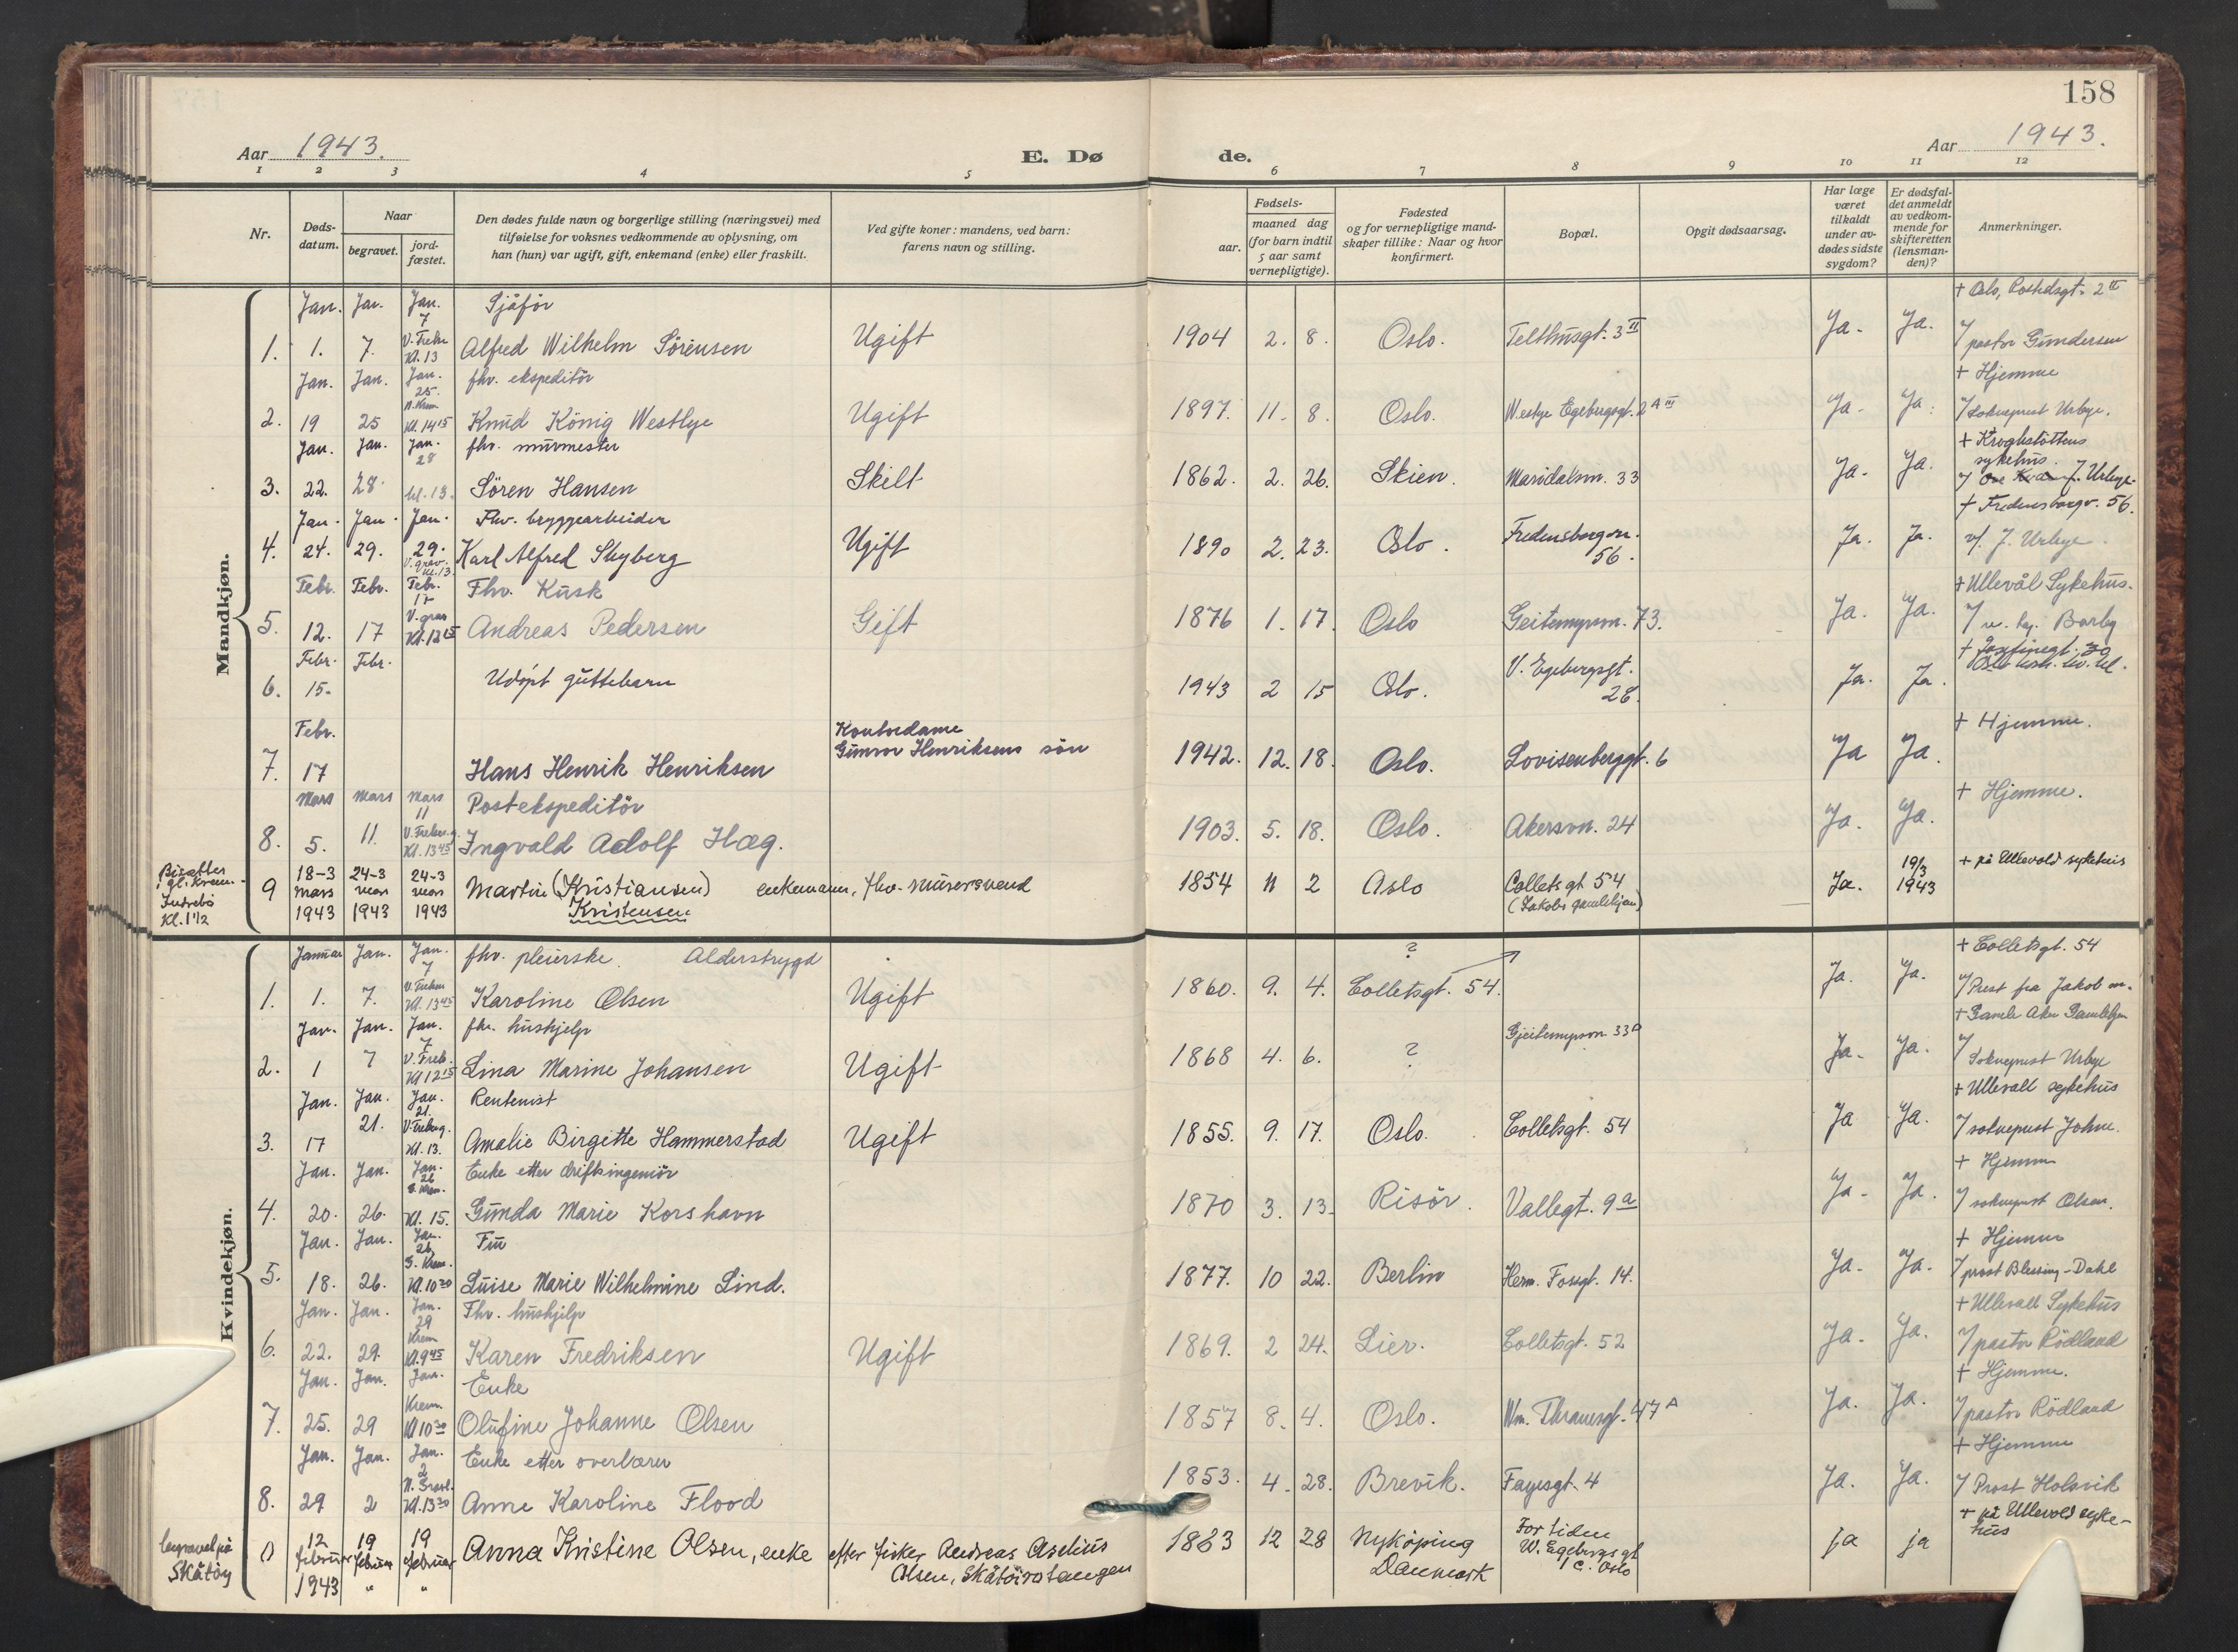 158
Aar 1943.
E. Dø
de.
Aar 1943.
1 2 3 4 5 6 7 8 9 10 11 12
Nr.
Døds-
datum.
Naar
begravet.
jord-
fæstet.
Den dødes fulde navn og borgerlige stilling (næringsvei) med
tilføielse for voksnes vedkommende av oplysning, om
han (hun) var ugift, gift, enkemand (enke) eller fraskilt.
Ved gifte koner: mandens, ved barn:
farens navn og stilling.
Fødsels-
aar.
maaned dag
(for barn indtil
5 aar samt
vernepligtige).
Fødested
og for vernepligtige mand-
skaper tillike: Naar og hvor
konfirmert.
Bopæl.
Opgit dødsaarsag.
Har læge
været
tilkaldt
under av-
dødes sidste
sygdom?
Er dødsfal-
det anmeldt
av vedkom-
mende for
skifteretten
(lensman-
den)?
Anmerkninger.
Mandkjøn.
Jan. Jan. Jan. Sjåför + Oslo, 2 II
7
1. 1. 7. Kl. 13 Alfred Wilhelm Sörensen Ugift 1904 2. 8. Oslo. Telthusgt. 3 II Ja. Ja. pastor Gundersen
Jan. Jan. Jan. fhv. ekspeditör + Hjemme
25.
2. 19 25 Kl. 14 15 Knud König Westlye Ugift 1897. 11. 8. Oslo. Westye Egebergsgt. 2 A III Ja. Ja. sokneprest Urbye.
Jan. Jan. Jan. fhv. murmester + Kroghstöttens
28 sykehus.
3. 22. 28. kl. 13. Sören Hansen Skilt 1862. 2. 26. Skien. Maridalsvn. 33 Ja. Ja. J. Urbye.
Jan. Jan. Jan. Fhv. bryggearbeider + Fredensborgv. 56.
4. 24. 29. 29. Karl Alfred Skyberg Ugift 1890 2. 23. Oslo. Fredensborgvn. 56. Ja. Ja. v/ J. Urbye.
V. grav. kl. 13.
Febr. Febr. Febr. Fhv. Kusk + Ullevål Sykehus.
17
5. 12. 17 V. grav Kl. 12 15 Andreas Pedersen Gift 1876 1. 17. Oslo Geitemyrsvn. 73. Ja. Ja. Borby
Febr. Febr. + Josefinegt. 30
6. 15. Udöpt guttebarn 1943 2 15 Oslo. V. Egebergsgt. 28. Ja. Ja.
Febr. Kontordame + Hjemme.
7. 17 Hans Henrik Henriksen Gunvor Henriksens sön 1942. 12. 18. Oslo. Lovisenberggt. 6 Ja Ja.
Mars Mars Mars Postekspeditör + Hjemme.
11
8. 5. 11. Kl. 13 45 Ingvald Adolf Hæg. 1903. 5. 18. Oslo. Akersvn. 24 Ja. Ja.
Bisattes gl. Krem.
Kl. 1 1/2
18-3 24-3 24-3
9 mars mars mars Martin (Kristiansen) enkemann, fhv. murersvend 1854 11 2 Oslo Colletsgt 54 Ja. 19/3 1943 + på Ullevold sykehus
1943 1943 1943 Kristensen (Jakobs gamlehjem)
Kvindekjøn.
Januar Jan. Jan. fhv. pleierske. Alderstrygd ? + Colletsgt. 54
7
1. 1. 7. Kl. 13 45 Karoline Olsen Ugift 1860. 9. 4. Colletsgt. 54. Ja. Ja. Prest fra Jakob m.
Jan. Jan. Jan. fhv. hushjelp + Gamle Aker Gamlehjem
7
2. 1 7 Kl 12 15 Lina Marine Johansen Ugift 1868 4. 6. ? Gjeitemyrsvn. 33 A Ja. Ja. Sokneprest Urbye
Jan. Jan. Jan. Rentenist + Ullevall sykehus
21.
3. 17 21. Kl. 13. Amalie Birgitte Hammerstad Ugift 1855. 9. 17. Oslo. Colletsgt. 54 Ja Ja. sokneprest Johne.
Jan. Jan. Jan. Enke etter driftsingeniör + Hjemme
26
4. 20. 26. Kl. 15. Gunda Marie Korshavn 1870 3. 13. Risör. Vallegt. 9 a Ja. Ja. sokneprest Olsen.
Jan. Jan. Jan. Fru + Hjemme
26
5. 18. 26. Kl. 10 30 Luise Marie Wilhelmine Lind. 1877. 10 22. Berlin Herm. Fossgt. 14. Ja. Ja. prost Blessing-Dahl
Jan. Jan. Jan. Fhv. hushjelp + Ullevall Sykehus
29
6. 22. 29. Krem Kl. 9 45 Karen Fredriksen Ugift 1869. 2 24. Lier. Colletsgt. 52 Ja. Ja. pastor Rödland
Jan. Jan. Jan. Enke + Hjemme.
7. 25. 29 Krem. Kl 10 30 Olufine Johanne Olsen 1857 8. 4. Oslo. Wm. Thranesgt. 47 A Ja. Ja. pastor Rödland
Jan. Jan. Jan. Enke etter overlærer + Hjemme
2
8. 29 2 Kl. 13 30 Anne Karoline Flood 1853. 4. 28. Brevik. Fayesgt. 4 Ja. Ja. Prost Holsvik
begravet på
Skåtöy
12 19 19 + på Ullevold syke-
hus
februar februar februar Anna Kristine Olsen, enke efter fisker Andreas Aselius 1863 12 28 Nyköping For tiden ja ja
1943 " " Olsen, Skåtöirøtangen Danmark W. Egebergs gt
1 C. Oslo